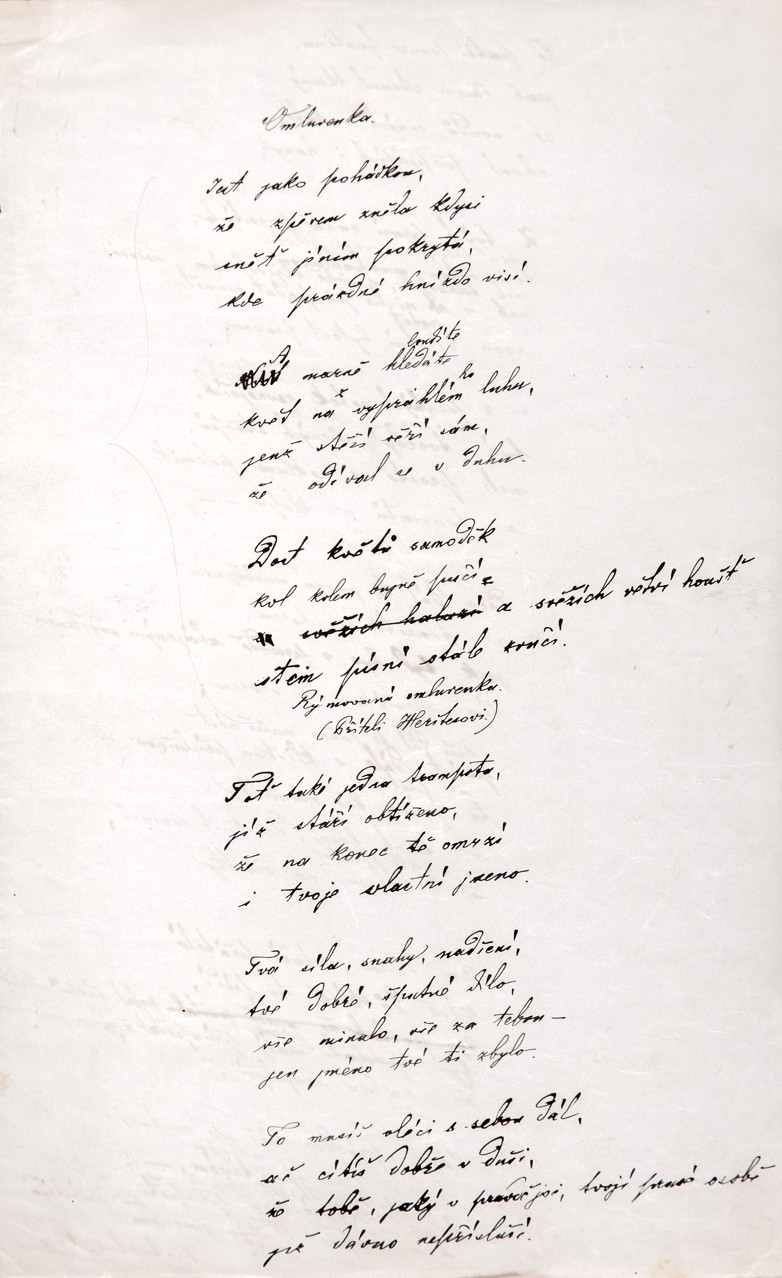 Omluvenka.
Jest jako pohádkou,
že zpěvem zněla kdysi
snět' jíním pokrytá,
kde prázdné hnízdo visí.
A loudíte
marně hledáte
květ na z vyprahlém ho luhu,
jenž stěží věří sám,
že odíval se v duhu.
Dost květů samoděk
kol kolem bujně pučí
svěžích haluzí a svěžích větví houšť
stem písní stále zvučí.
Rýmovaná omluvenka.
(Příteli Heritesovi.)
Toť také jedna trampota,
již stáří obtíženo,
že na konec tě omrzí
i tvoje vlastní jmeno.
Tvá síla, snahy, nadšení,
tvé dobré, špatné dílo,
vše minulo, vše za tebou —
jen jméno tvé ti zbylo.
To musíš vléci s sebou dál,
ač cítíš dobře v duši,
že tobě, jaký v pravdě jsi, tvojí osobě
již dávno nepřísluší.